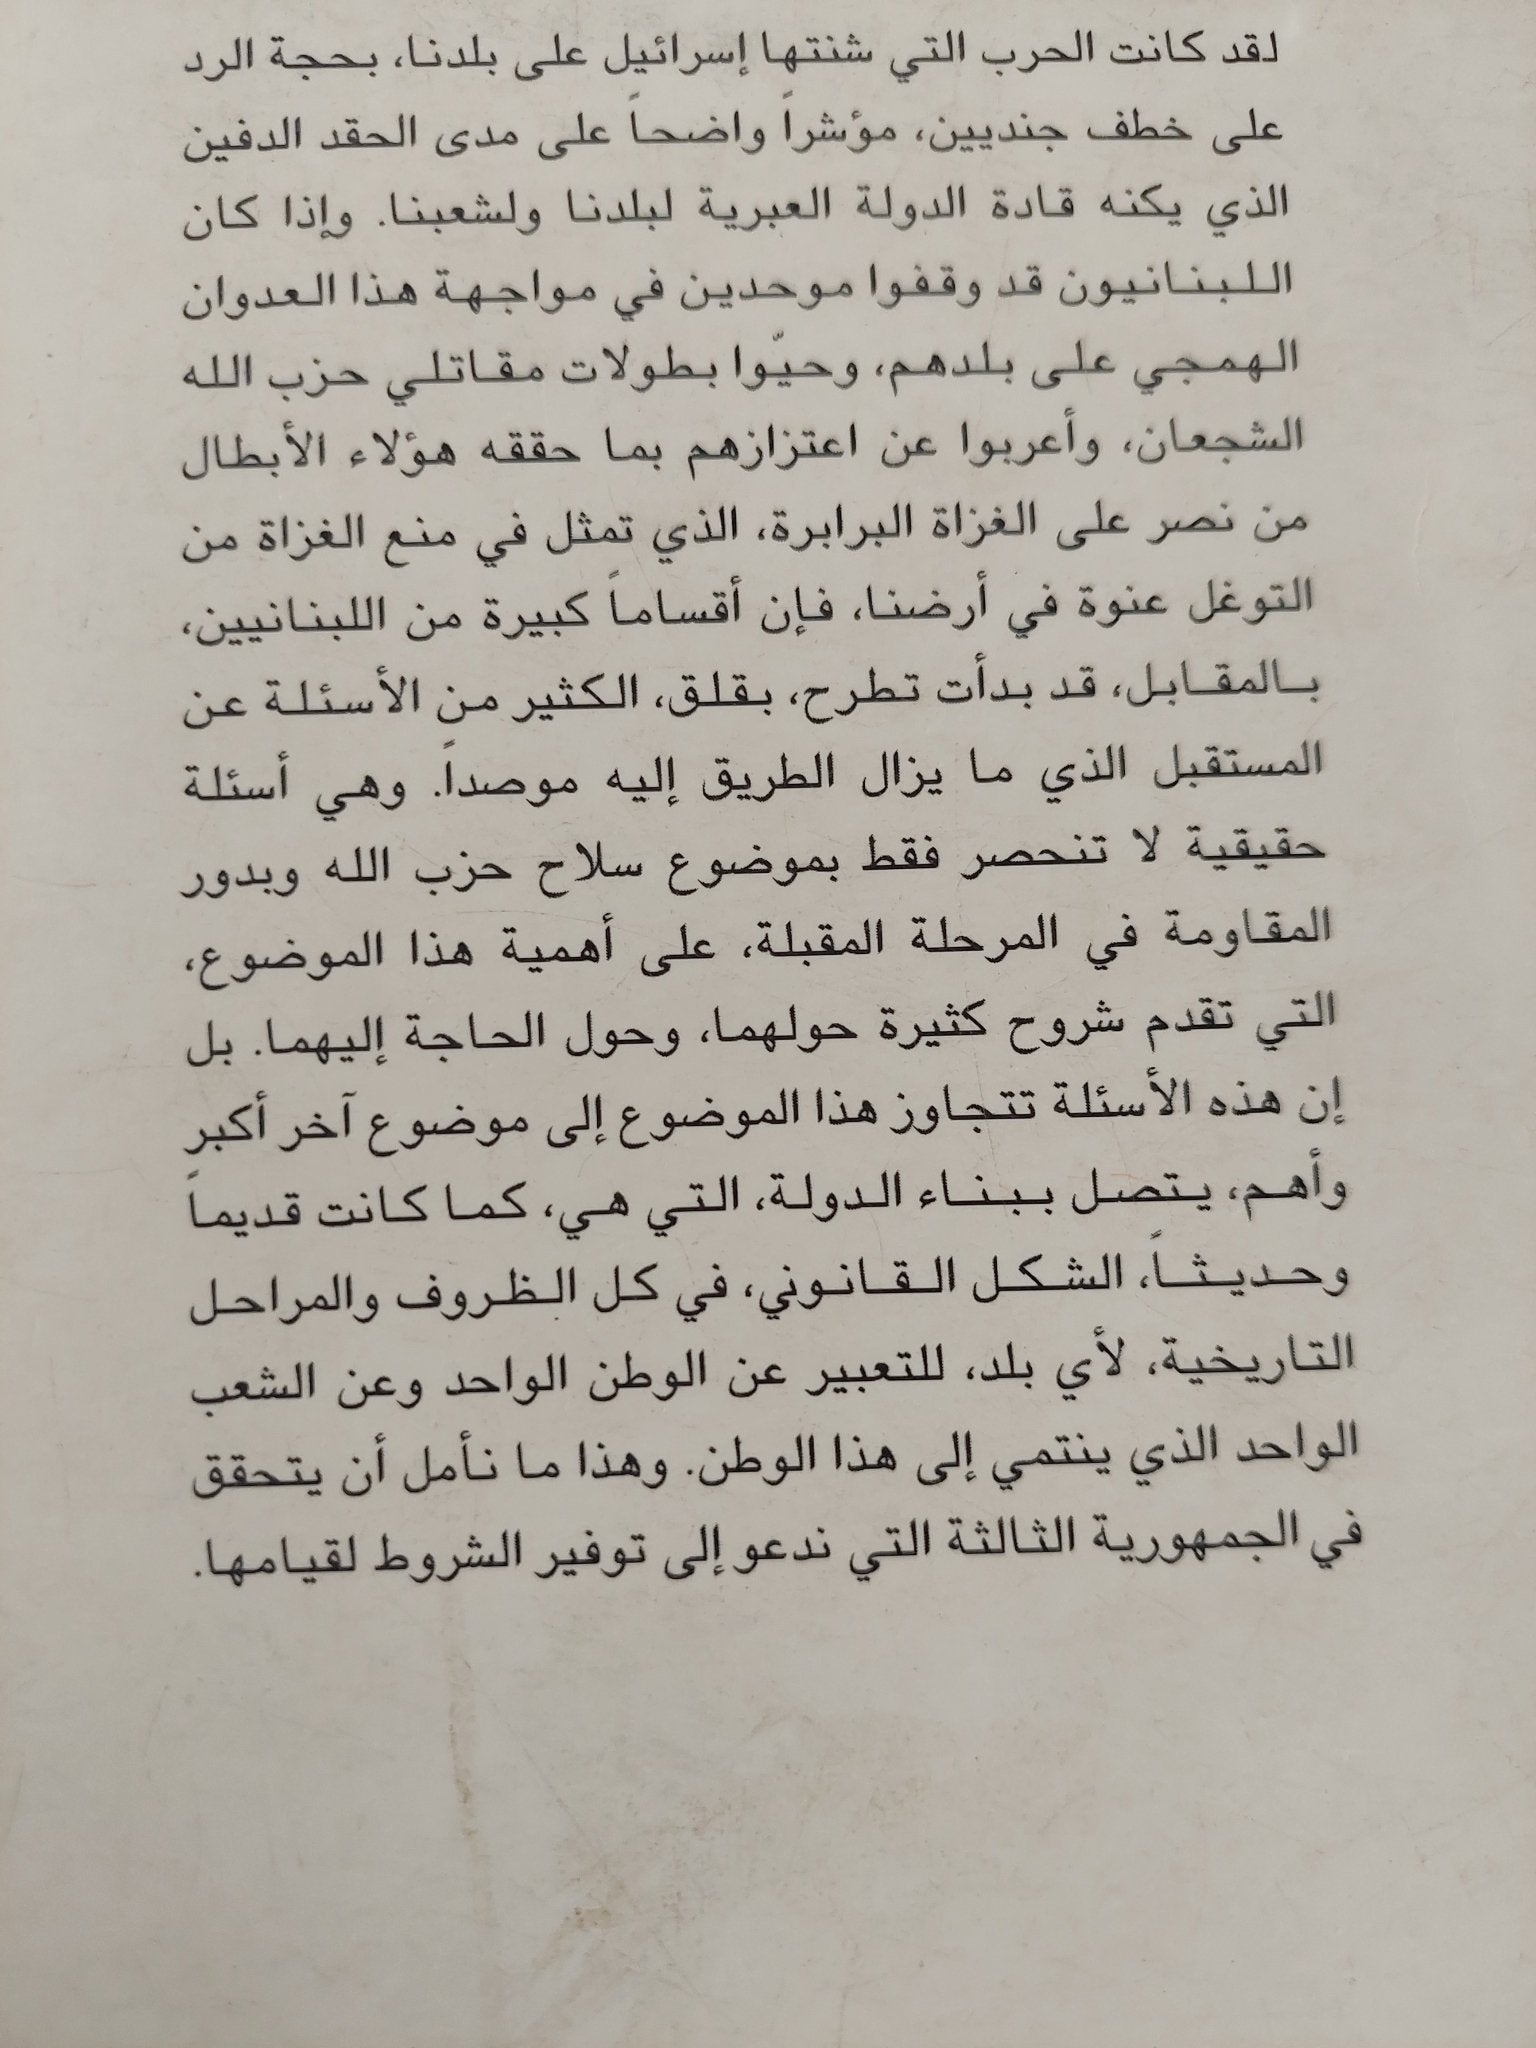 لقد كانت الحرب التي شنتها إسرائيل على بلدنا، بحجة الرد
على خطف جنديين، مؤشراً واضحاً على مدى الحقد الدفين
الذي يكنه قادة الدولة العبرية لبلدنا ولشعبنا. وإذا كان
اللبنانيون قد وقفوا موحدين في مواجهة هذا العدوان
الهمجي على بلدهم، وحيّوا بطولات مقاتلي حزب الله
الشجعان، وأعربوا عن اعتزازهم بما حققه هؤلاء الأبطال
من نصر على الغزاة البرابرة، الذي تمثل في منع الغزاة من
التوغل عنوة في أرضنا، فإن أقساماً كبيرة من اللبنانيين،
بالمقابل، قد بدأت تطرح، بقلق، الكثير من الأسئلة عن
المستقبل الذي ما يزال الطريق إليه موصداً. وهي أسئلة
حقيقية لا تنحصر فقط بموضوع سلاح حزب الله وبدور
المقاومة في المرحلة المقبلة، على أهمية هذا الموضوع،
التي تقدم شروح كثيرة حولهما، وحول الحاجة إليهما. بل
إن هذه الأسئلة تتجاوز هذا الموضوع إلى موضوع آخر أكبر
وأهم، يتصل ببناء الدولة، التي هي، كما كانت قديماً
وحديثاً، الشكل القانوني، في كل الظروف والمراحل
التاريخية، لأي بلد، للتعبير عن الوطن الواحد وعن الشعب
الواحد الذي ينتمي إلى هذا الوطن. وهذا ما نأمل أن يتحقق
في الجمهورية الثالثة التي ندعو إلى توفير الشروط لقيامها.